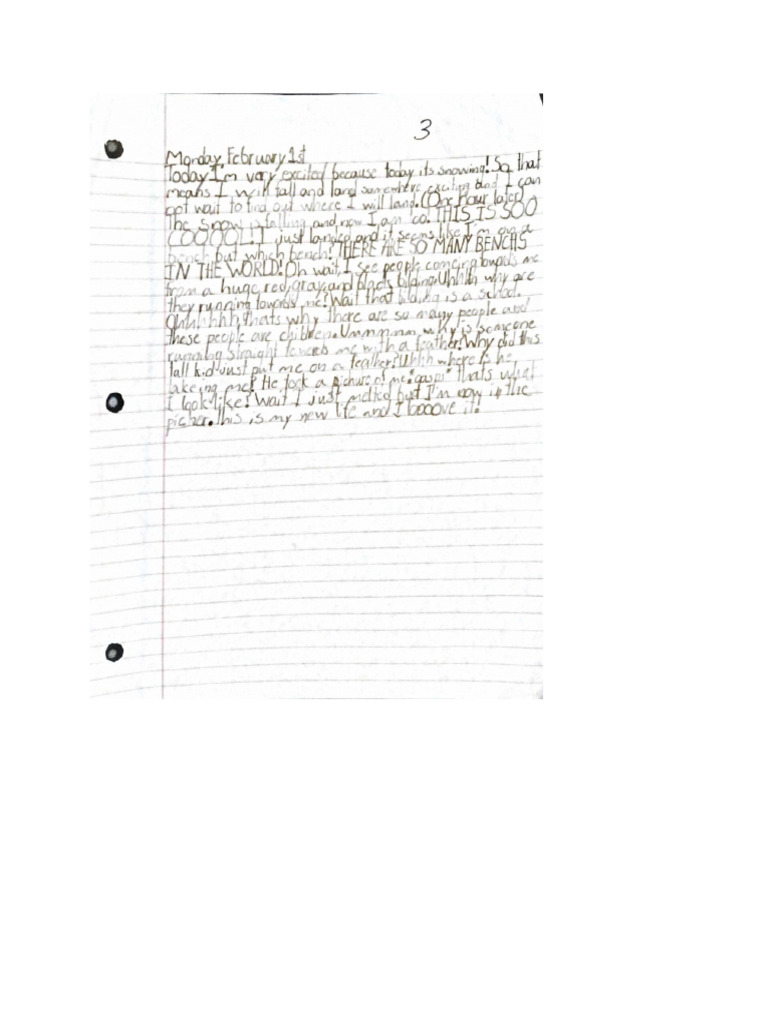 3
Monday, February 1st
Today I'm very excited because today its snowing! So that
means I will fall and land somewhere exciting and I can
not wait to find out where I will land. (One hour later)
The snow is falling and now I am to. THIS IS SOO
COOOOL! I just landed and it seems like I'm on a
bench but which bench! THERE ARE SO MANY BENCHS
IN THE WORLD! Oh wait, I see people comeing towards me
from a huge, red, gray, and black bilding. Uhhhh why are
they running towards me? Wait that bilding is a school.
Ohhhhhh, thats why there are so many people and
these people are children. Ummmmm why is someone
running straight towerds me with a feather. Why did this
tall kid just put me on a feather? Uhhh where is he
takeing me? He took a picture of me "gasp" thats what
I look like! Wait I just melted but I'm now in the
picher. This is my new life and I looove it!